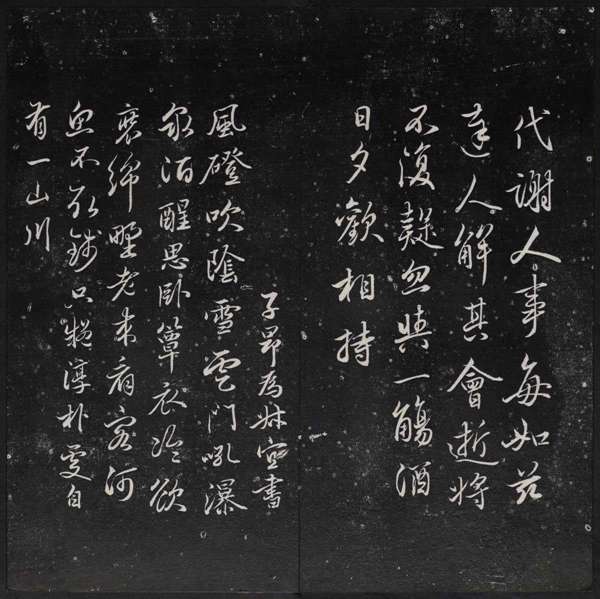 代謝人事每如茲
達人解其會逝將
不復疑忽與一觴酒
日夕歡相持
子昂為妹書
風磴吹陰雪雲門吼瀑
泉酒醒思臥簟衣冷欲
裝綿野老來看客河
魚不取錢只疑淳朴處自
有一山川